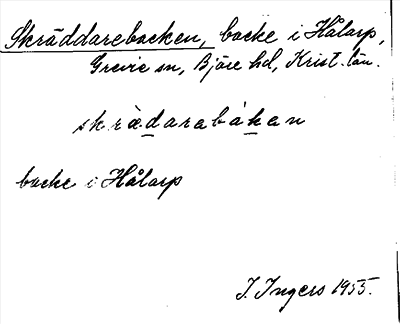 Skräddarebacken, backe i Hålarp,
Grevie sn, Bjäre hd, Krist. län.
skrädarabákan
backe i Hålarp
I. Ingers 1955.